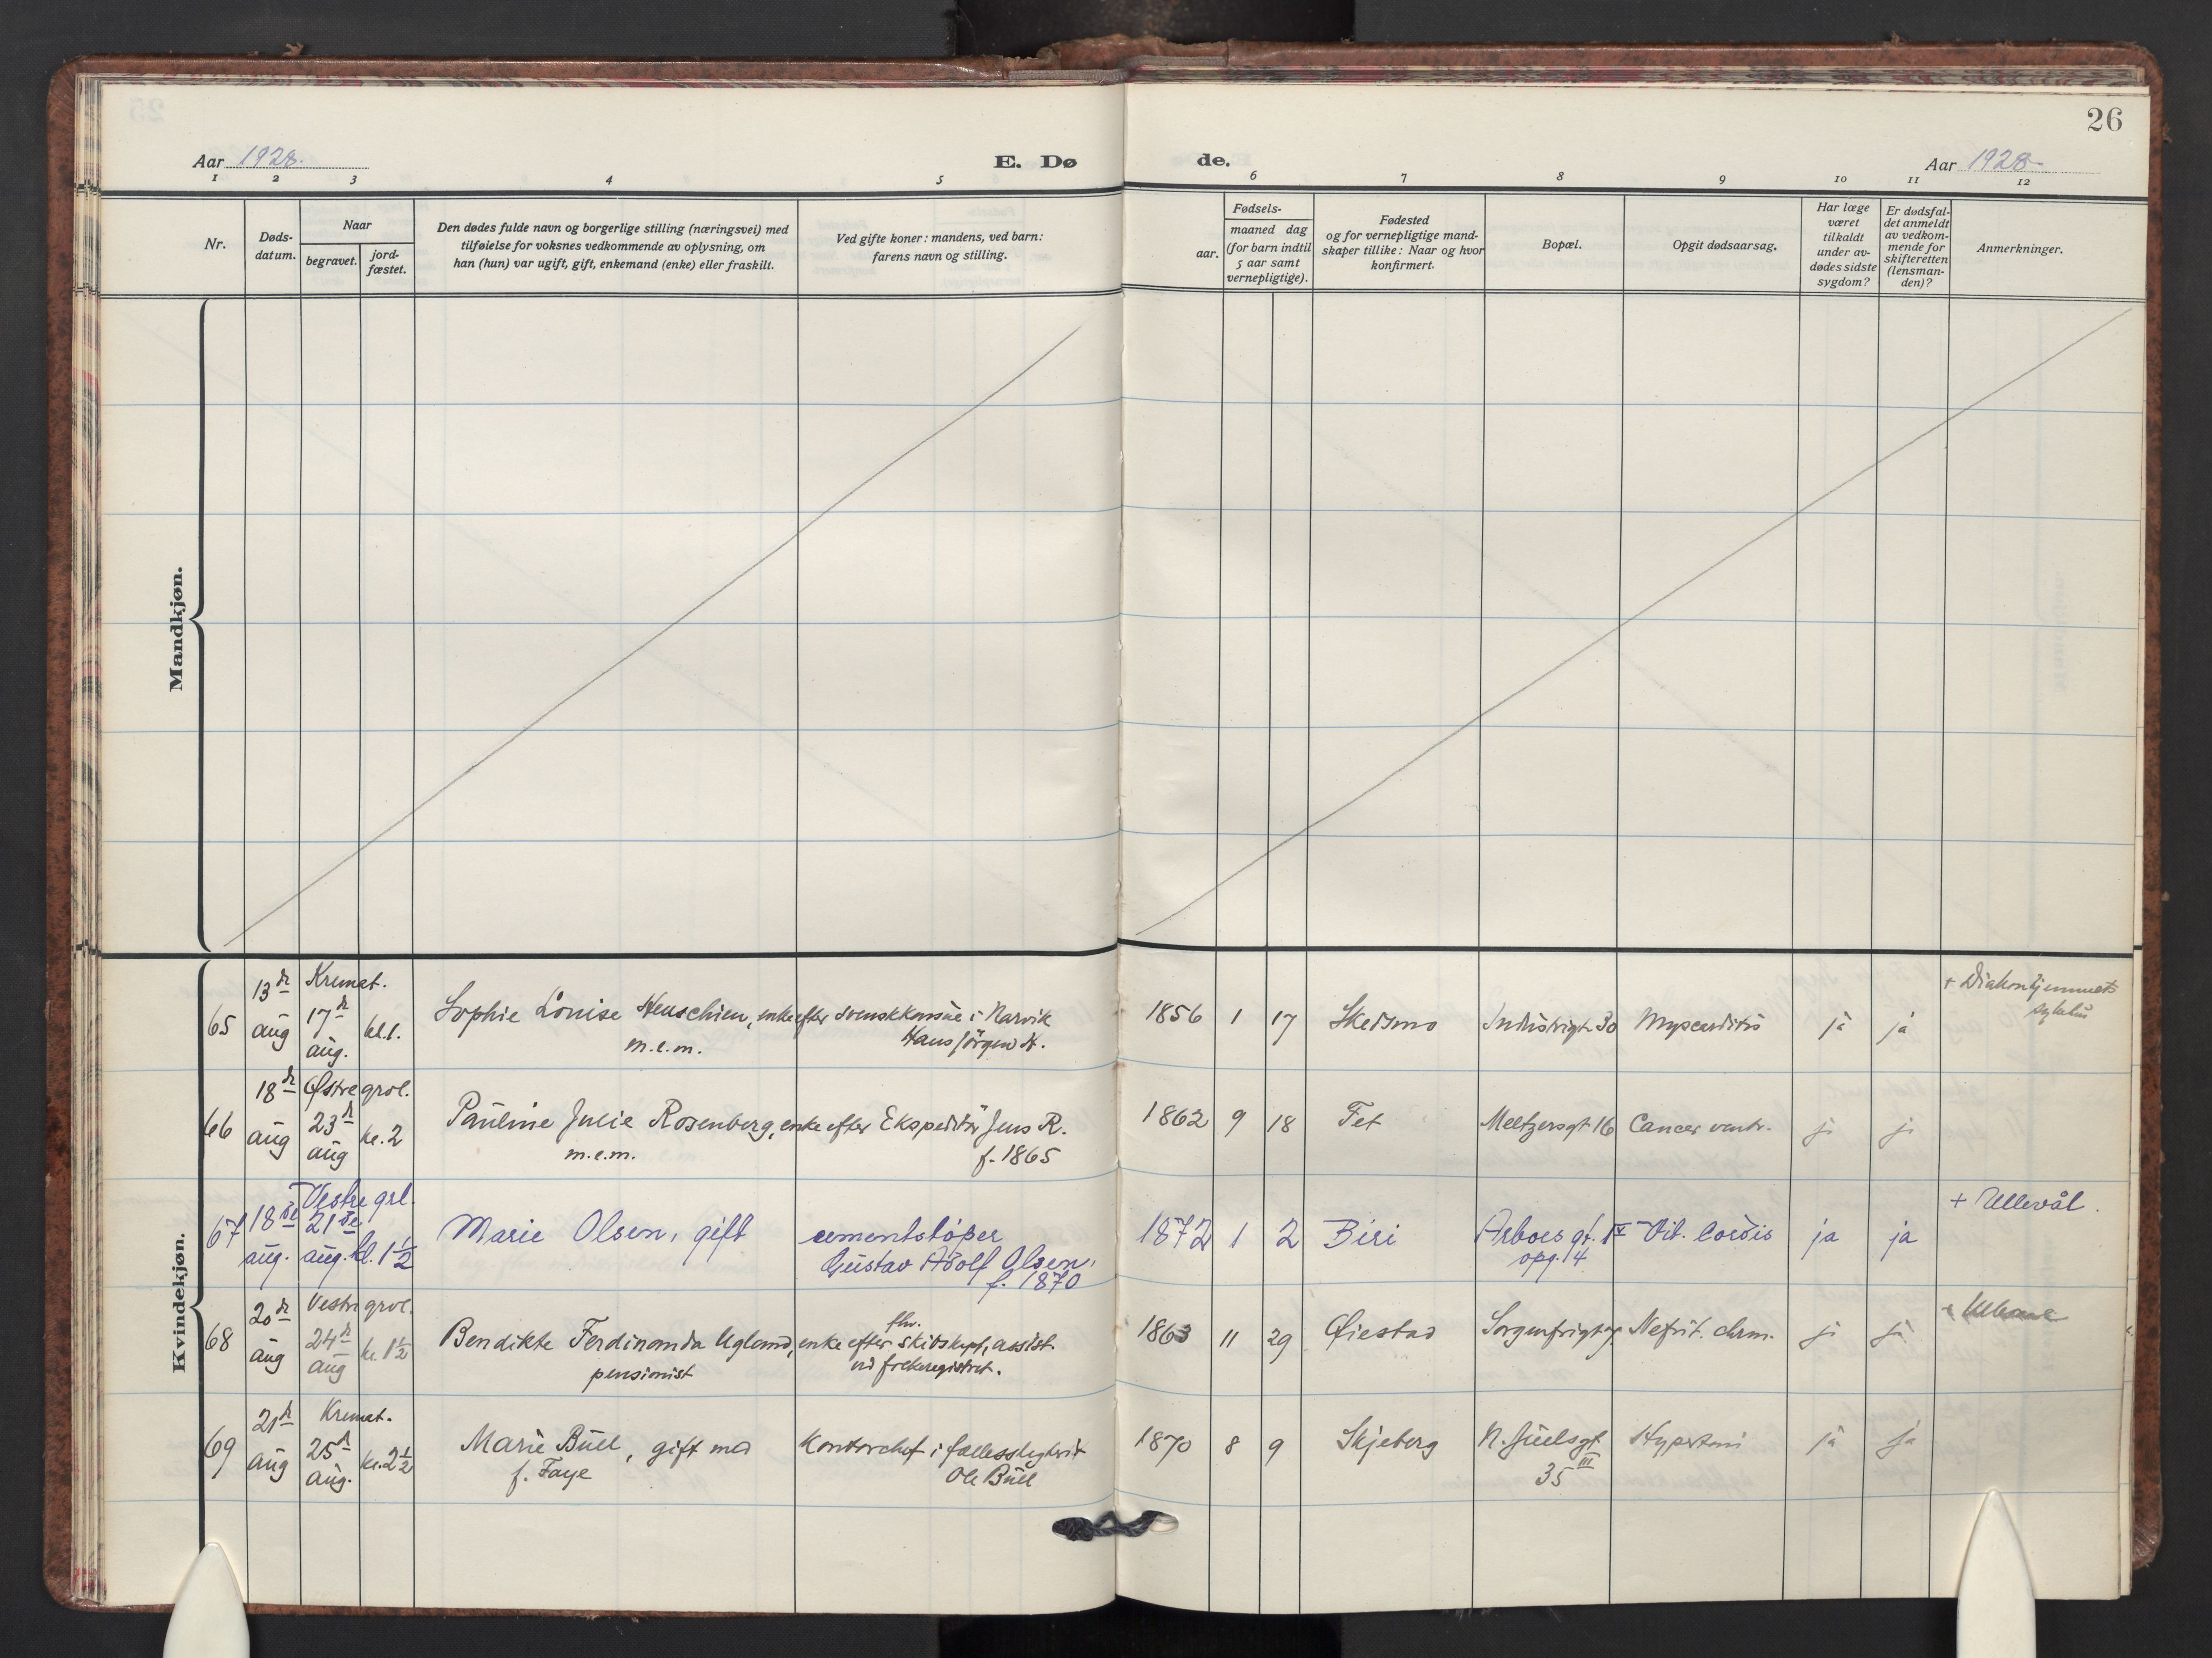 26
Aar 1928.
E. Dø
de.
Aar 1928
1 2 3 4 5 6 7 8 9 10 11 12
Nr.
Døds-
datum.
Naar
begravet.
jord-
fæstet.
Den dødes fulde navn og borgerlige stilling (næringsvei) med
tilføielse for voksnes vedkommende av oplysning, om
han (hun) var ugift, gift, enkemand (enke) eller fraskilt.
Ved gifte koner: mandens, ved barn:
farens navn og stilling.
Fødsels-
aar.
maaned dag
(for barn indtil
5 aar samt
vernepligtige).
Fødested
og for vernepligtige mand-
skaper tillike: Naar og hvor
konfirmert.
Bopæl.
Opgit dødsaarsag.
Har læge
været
tilkaldt
under av-
dødes sidste
sygdom?
Er dødsfal-
det anmeldt
av vedkom-
mende for
skifteretten
(lensman-
den)?
Anmerkninger.
Mandkjøn.
Kvindekjøn.
65
13de aug
Kremat.
17de aug.
kl.1.
Sophie Louise Henschien, enke efter svensk konsul i Narvik
m.e.m. Hans Jörgen H.
1856 1 17 Skedsmo Industrigt. 30 Myocarditis ja ja
+ Diakonhjemmets
sykehus
66
18de aug
Østre grvl.
23de aug
kl. 2
Pauline Julie Rosenberg, enke efter Ekspeditör Jens R.
m.e.m. f. 1865
1862 9 18 Fet Meltzersgt 16 Cancer ventr. ja ja
67
18de aug.
Vestre grl.
21de aug.
kl. 1½
Marie Olsen, gift cementstöper
Gustav Adolf Olsen,
f. 1870
1872 1 2 Biri Arboes gt. 1 IV Vit. Cordis ja ja
opg. 14
+ Ullevål.
68
20de aug
Vestre grvl.
24de aug
kl. 1½
fhv.
Bendikte Ferdinanda Ugland, enke efter skibskapt., assist.
pensionist ved folkeregistret.
1863 11 29 Øiestad Sorgenfrigt Nefrit. chron. ja ja
69
21de aug
Kremat.
25de aug.
kl. 2½
Marie Bull, gift med Kontorchef i
f. Faye Ole Bull
1870 8 9 Skjeberg N. Juelsgt Hypertoni ja ja
35 III